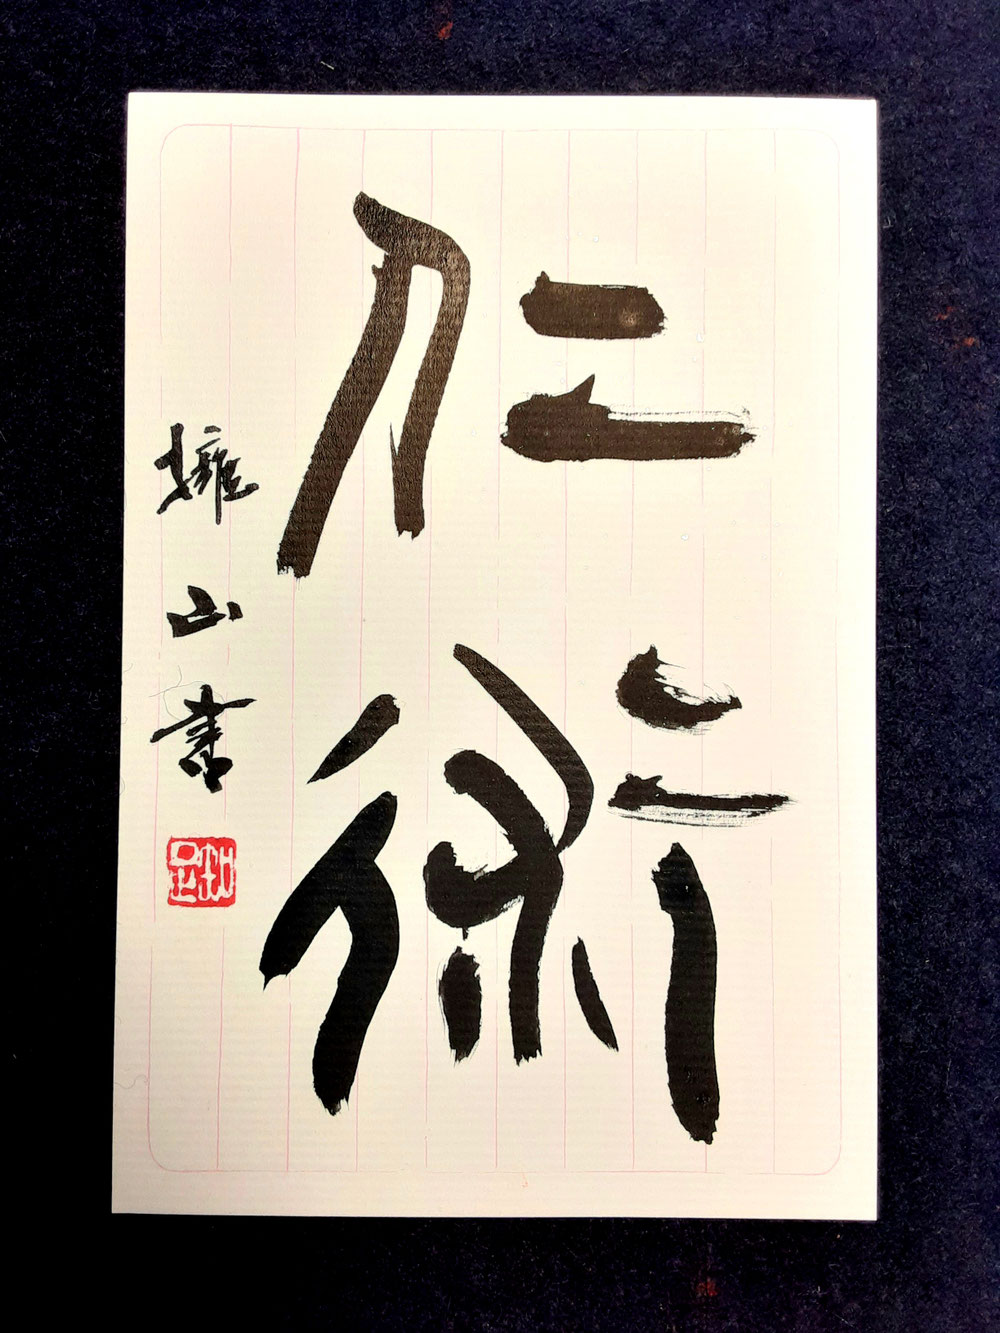 仁術
擁山書